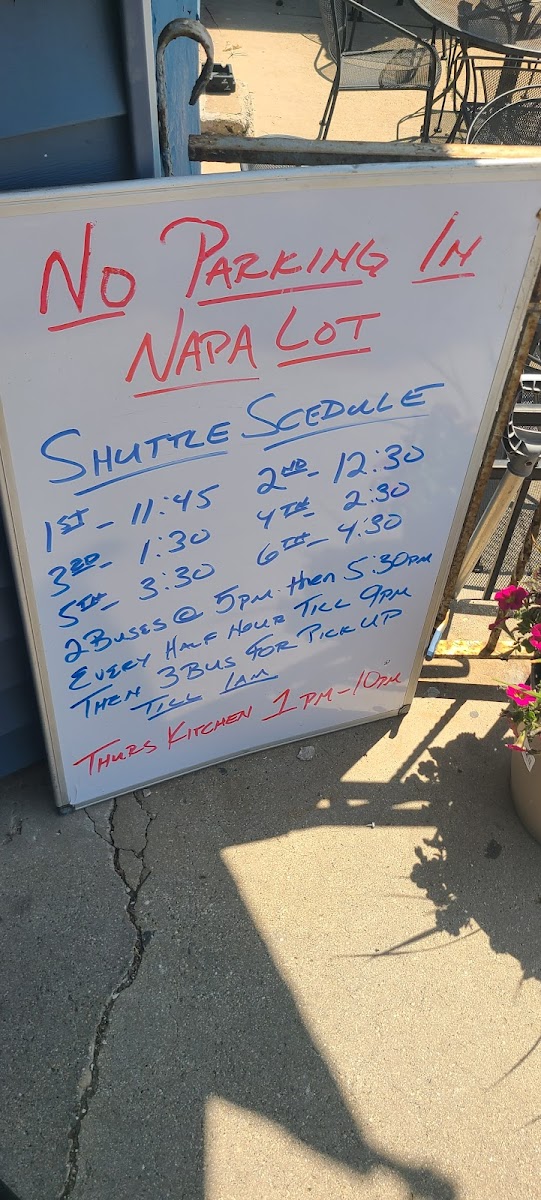 No Parking In
Napa Lot
Shuttle Scedule
1st - 11:45 2nd - 12:30
3rd - 1:30 4th - 2:30
5th - 3:30 6th - 4:30
2 Buses @ 5pm then 5:30pm
Every Half Hour Till 9pm
Then 3 Bus for Pick up
Till 1am
Thurs Kitchen 1pm-10pm